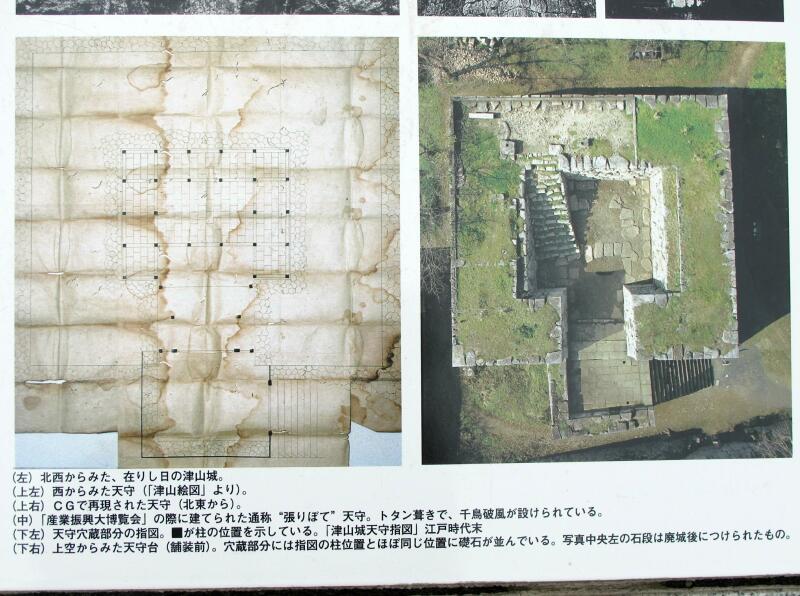 (左) 北西からみた、在りし日の津山城。
(上左) 西からみた天守(「津山絵図」より)。
(上右) CGで再現された天守(北東から)。
(中) 「産業振興大博覧会」の際に建てられた通称“張りぼて”天守。トタン葺きで、千鳥破風が設けられている。
(下左) 天守穴蔵部分の指図。■が柱の位置を示している。「津山城天守指図」江戸時代末
(下右) 上空からみた天守台(舗装前)。穴蔵部分には指図の柱位置とほぼ同じ位置に礎石が並んでいる。写真中央左の石段は廃城後につけられたもの。